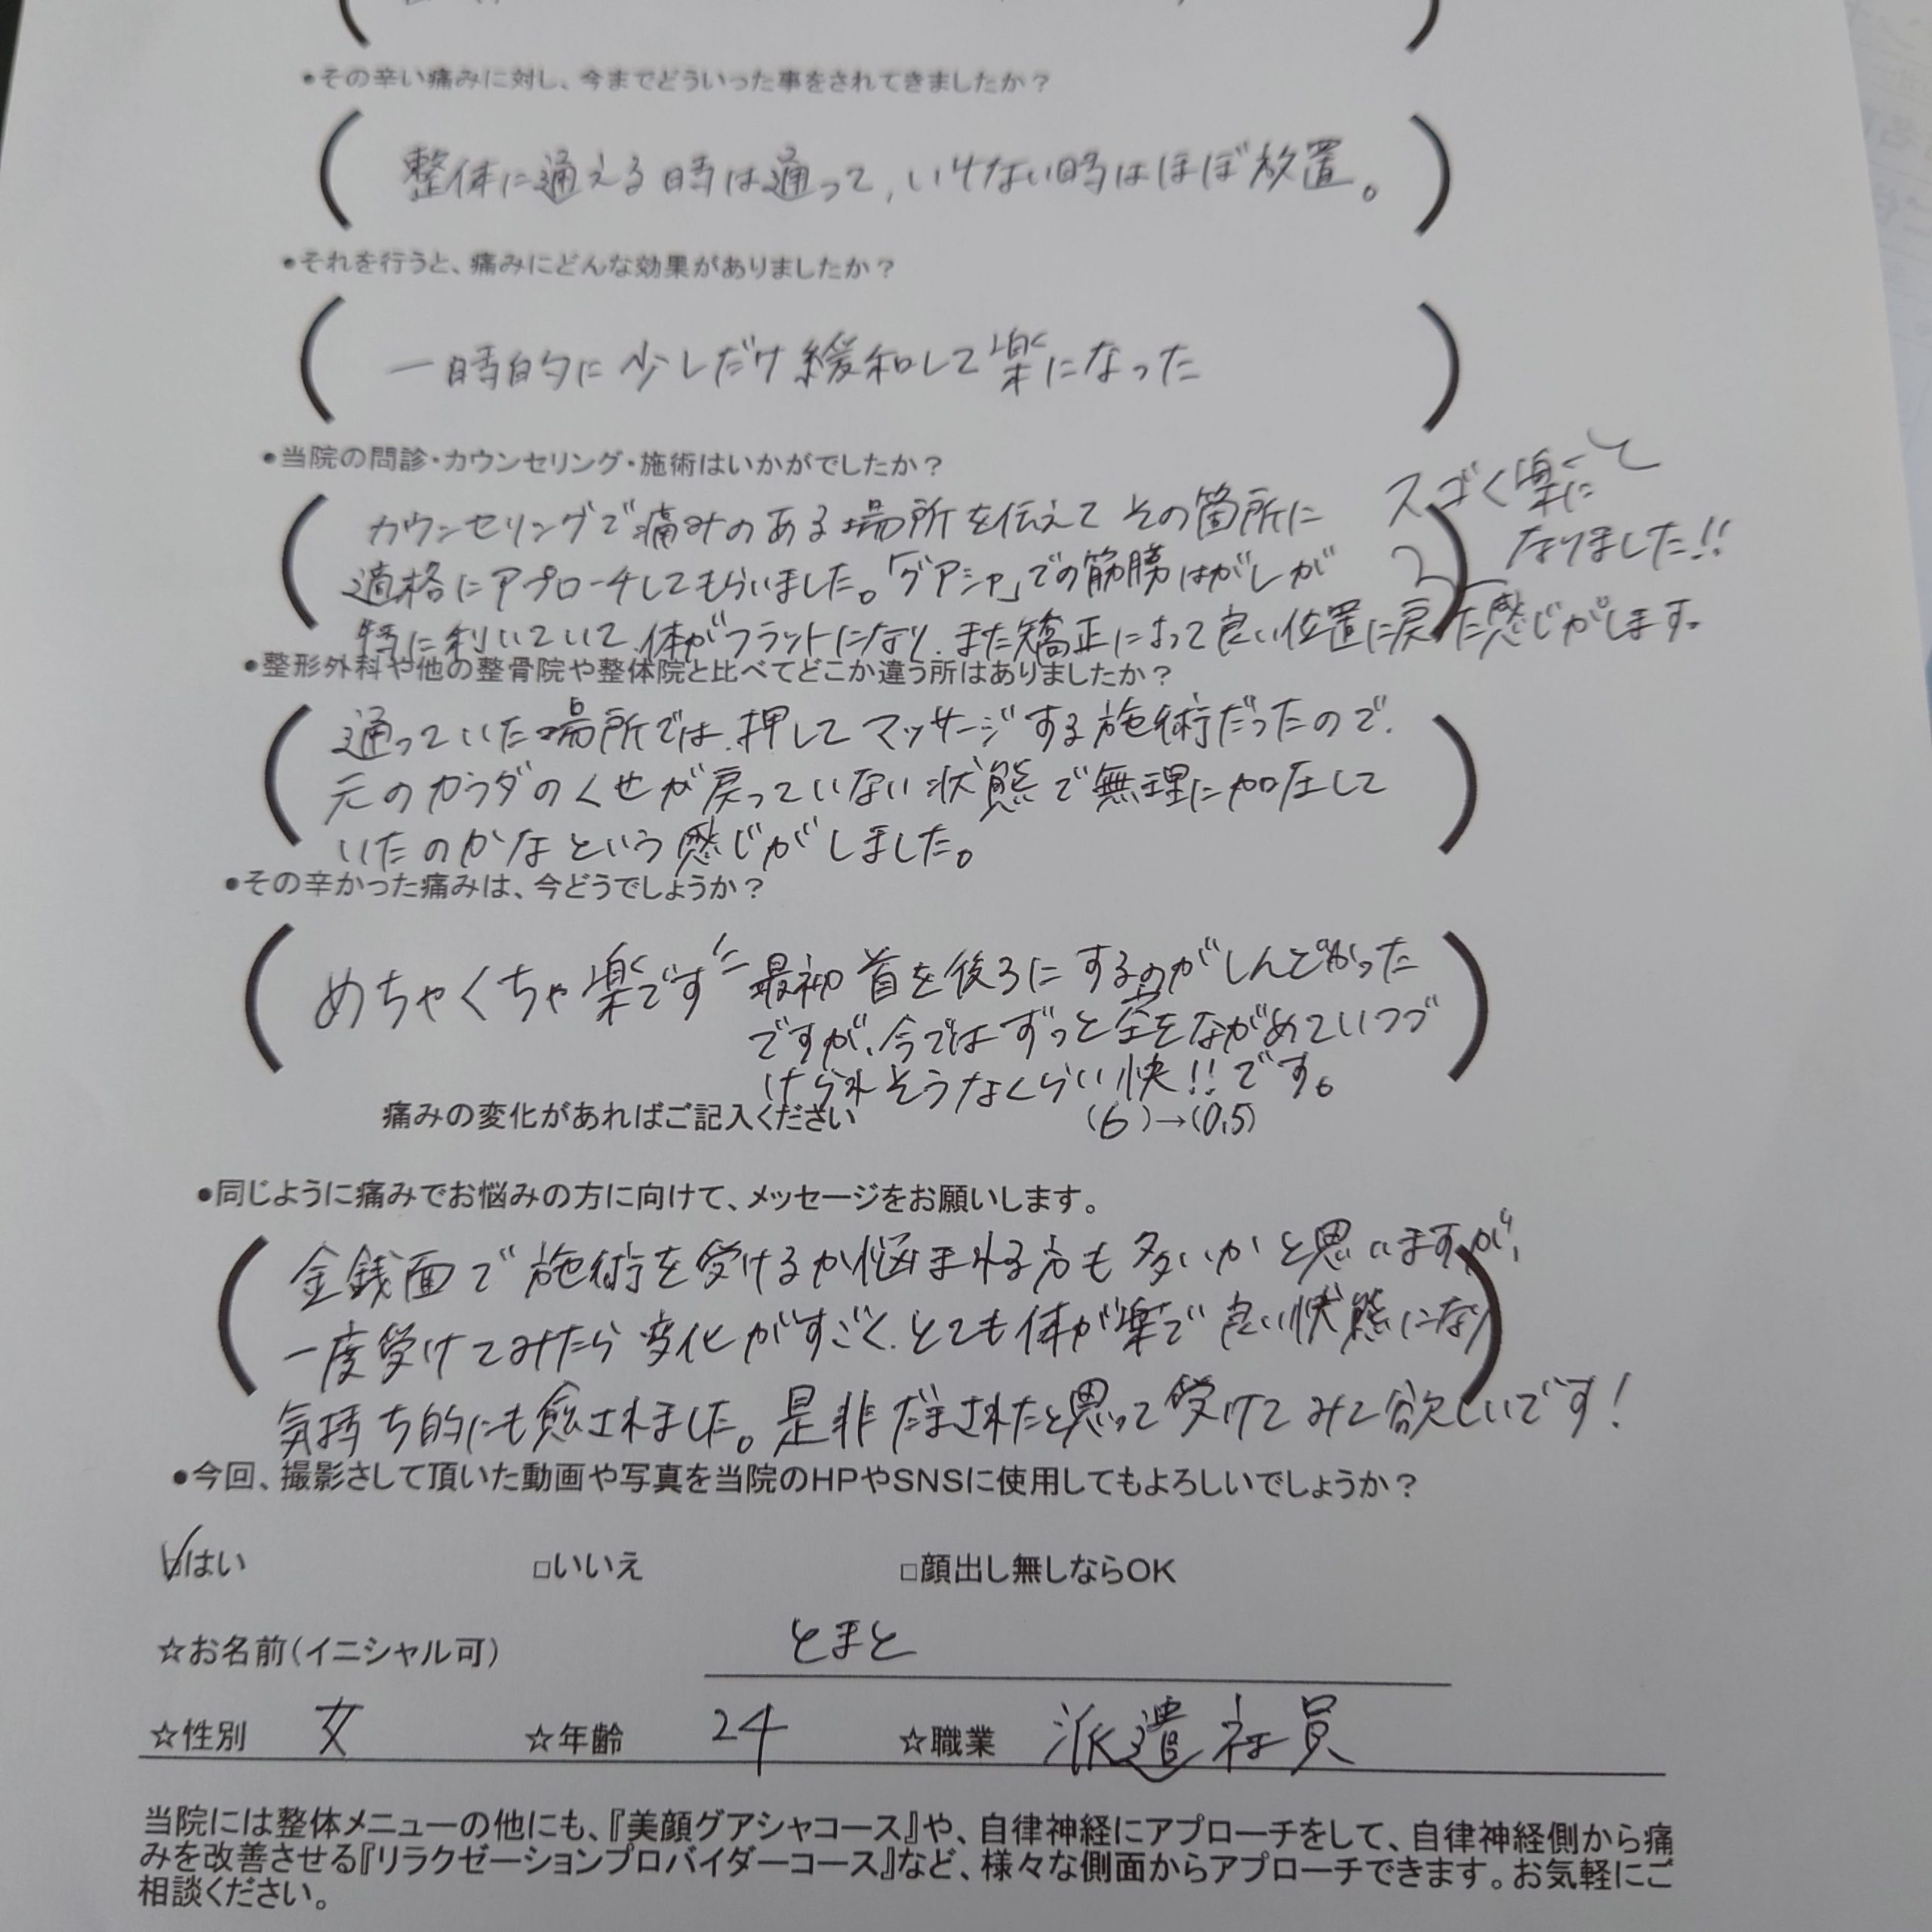 ●その辛い痛みに対し、今までどういった事をされてきましたか？
整体に通える時は通って、いけない時はほぼ放置。
●それを行うと、痛みにどんな効果がありましたか？
一時的に少しだけ緩和して楽になった
●当院の問診・カウンセリング・施術はいかがでしたか？
カウンセリングで痛みのある場所を伝えてその箇所に
適格にアプローチしてもらいました。「グアシャ」での筋膜はがしが
特に利いていて、体がフラットになり、また矯正によって良い位置に戻った感じがします。
スゴく楽に
なりました!!
●整形外科や他の整骨院や整体院と比べてどこか違う所はありましたか？
通っていた場所では、押してマッサージする施術だったので、
元のカラダのくせが戻っていない状態で無理に加圧して
いたのかなという感じがしました。
●その辛かった痛みは、今どうでしょうか？
めちゃくちゃ楽です 最初首を後ろにするのがしんどかった
ですが、今ではずっと空をながめていつづ
けられそうなくらい快!!です。
痛みの変化があればご記入ください (6)→(0.5)
●同じように痛みでお悩みの方に向けて、メッセージをお願いします。
金銭面で施術を受けるか悩まれる方も多いかと思いますが、
一度受けてみたら変化がすごく、とても体が楽で良い状態になり
気持ち的にも癒されました。是非だまされたと思って受けてみて欲しいです！
●今回、撮影さして頂いた動画や写真を当院のHPやSNSに使用してもよろしいでしょうか？
☑はい □いいえ □顔出し無しならOK
☆お名前(イニシャル可) とまと
☆性別 女 ☆年齢 24 ☆職業 派遣社員
当院には整体メニューの他にも、『美顔グアシャコース』や、自律神経にアプローチをして、自律神経側から痛
みを改善させる『リラクゼーションプロバイダーコース』など、様々な側面からアプローチできます。お気軽にご
相談ください。